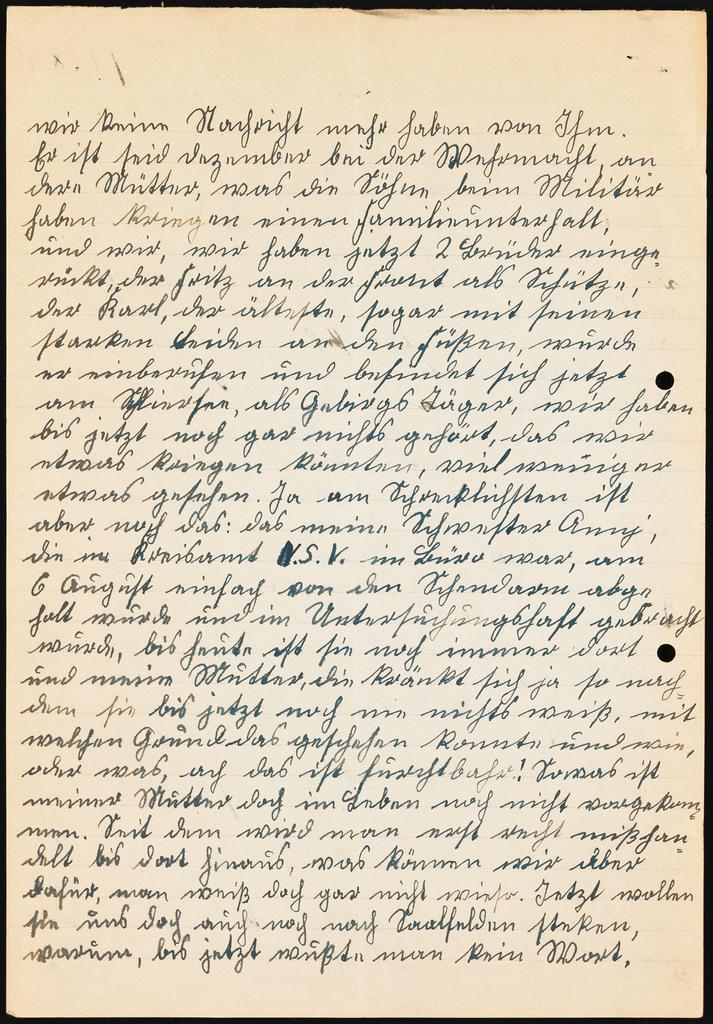 wir keine Nachricht mehr haben von Ihm.
Er ist seid dezember bei der Wehrmacht, an
dere Mütter, was die Söhne beim Militär
haben kriegen einen Familieunterhalt,
und wir, wir haben jetzt 2 Brüder einge-
rückt, der Fritz an der Front als Schütze,
der Karl, der älteste, sogar mit seinen
starken Leiden an den Füßen, wurde
er einberufen und befindet sich jetzt
am als Gebirgs Jäger, wir haben
bis jetzt noch gar nichts gehört, das wir
etwas kriegen könnten, viel weniger
etwas gesehen. Ja am Schrecklichsten ist
aber noch das: das meine Schwester Anny,
die im Kreisamt N.S.V. im Büro war, am
6 August einfach von den Schendarm abge
holt wurde und im Untersuchungshaft gebracht
wurde, bis heute ist sie noch immer dort
und meine Mutter, die kränkt sich ja so nach-
dem sie bis jetzt noch nie nichts weiß, mit
welchen Grund das geschehen konnte und wie,
oder was, ach das ist furchtbahr! Sowas ist
meiner Mutter doch im Leben noch nicht vorgekom-
men. Seit dem wird man erst recht mißhan-
delt bis dort hinaus, was können wir aber
dafür, man weiß doch gar nicht wieso. Jetzt wollen
sie uns doch auch noch nach Saalfelden steken,
warum, bis jetzt wußte man kein Wort.